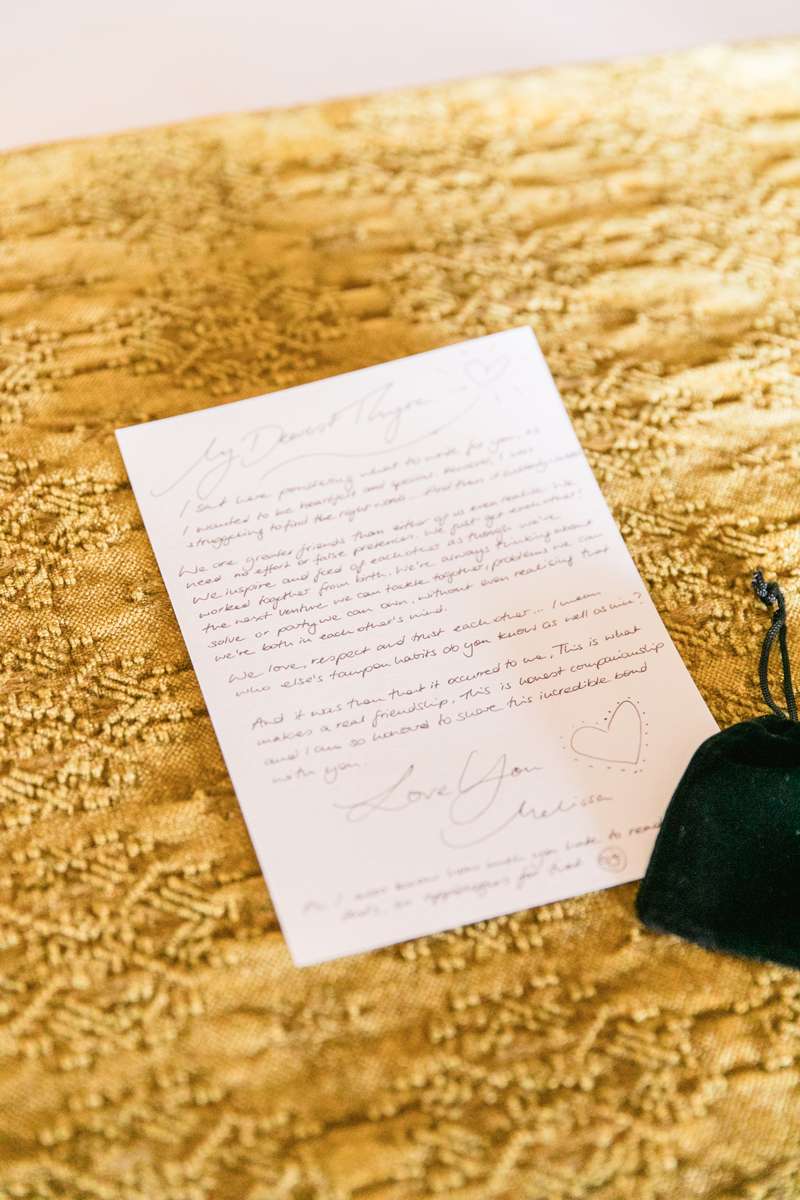 My Dearest
I sat here pondering what to write for you as
I wanted to be heartfelt and special. However, I was
struggling to find the right words... And then it suddenly
We are greater friends than either of us even realise. We
need no effort or false pretences. We just get each other!
We inspire and feed of each other as though we've
worked together from birth. We're always thinking about
the next venture we can tackle together, problems we can
solve or party we can own, without even realising that
we're both in each other's mind.
We love, respect and trust each other... I mean
who else's tampon habits do you know as well as mine?
And it was then that it occurred to me. This is what
makes a real friendship. This is honest companionship
and I am so honored to share this incredible bond
with you.
Love You
Melissa
Ps. I know how much you hate to read
so apologies for that